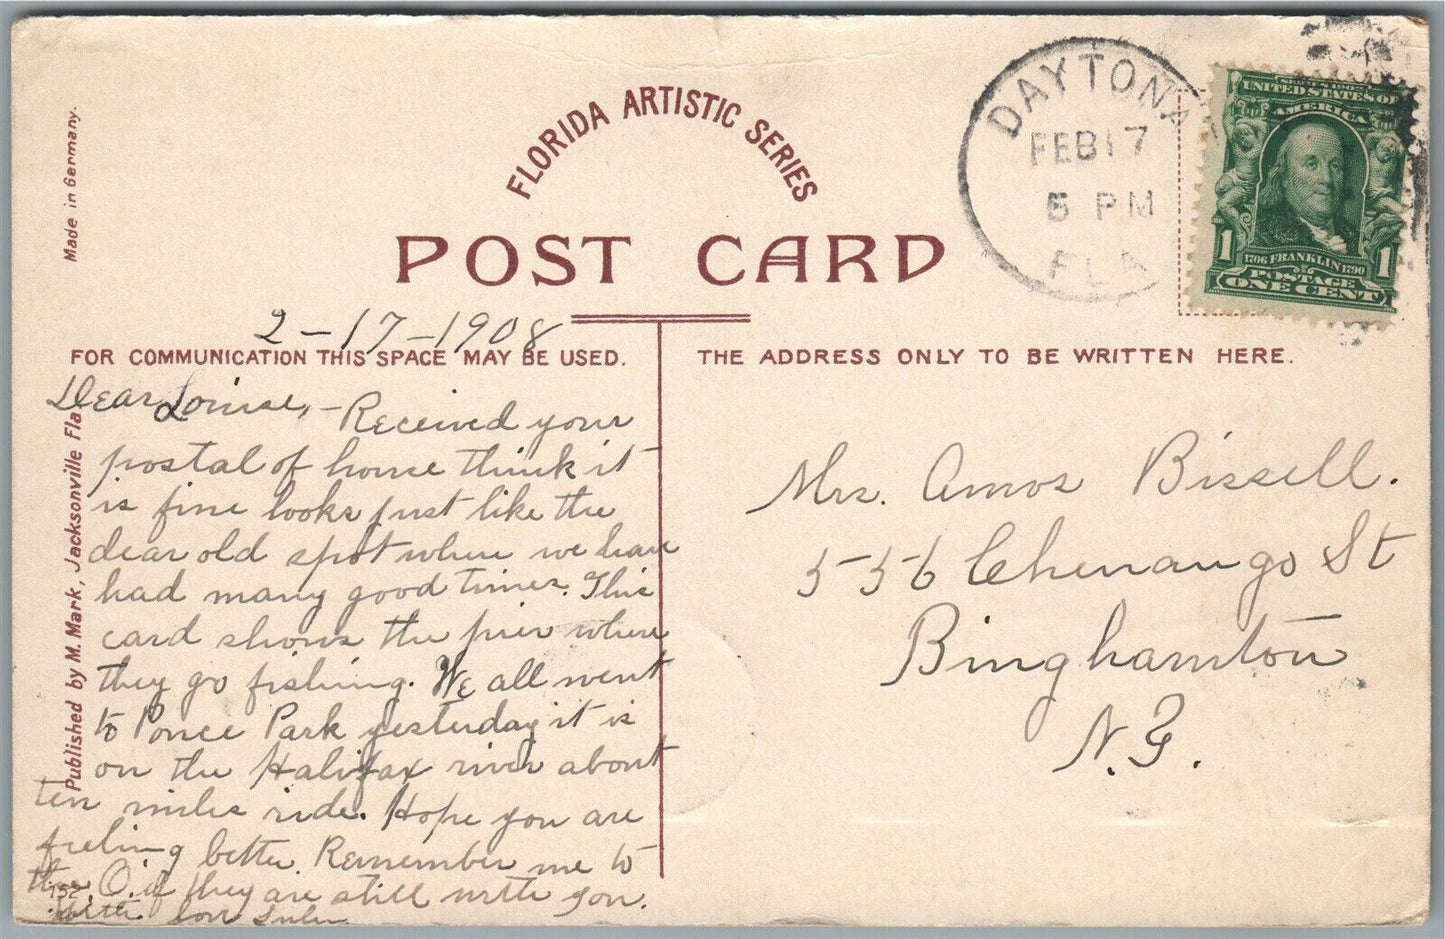 Made in Germany.
FLORIDA ARTISTIC SERIES
POST CARD
DAYTONA
FEB 17
5 PM
FLA
UNITED STATES OF
AMERICA
1 1706 FRANKLIN 1790 1
POSTAGE
ONE CENT
2-17-1908
FOR COMMUNICATION THIS SPACE MAY BE USED.
THE ADDRESS ONLY TO BE WRITTEN HERE.
Published by M. Mark, Jacksonville Fla
Dear Louise,- Received your
postal of home think it
is fine looks just like the
dear old spot where we have
had many good times. This
card shows the pier where
they go fishing. We all went
to Ponce Park yesterday it is
on the Halifax river about
ten miles ride. Hope you are
feeling better. Remember me to
the O. if they are still with you.
With love
152
Mrs. Amos Bissell.
556 Chenango St
Binghamton
N.Y.